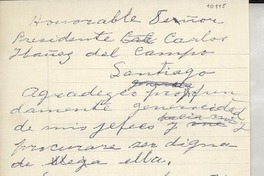 10115
Honorable Señor
Presidente Carlos
Ibañez del Campo
Santiago
Agradezco profun
damente generosidad
hacia mí
de mis jefes y
procurare ser digna
de ella.